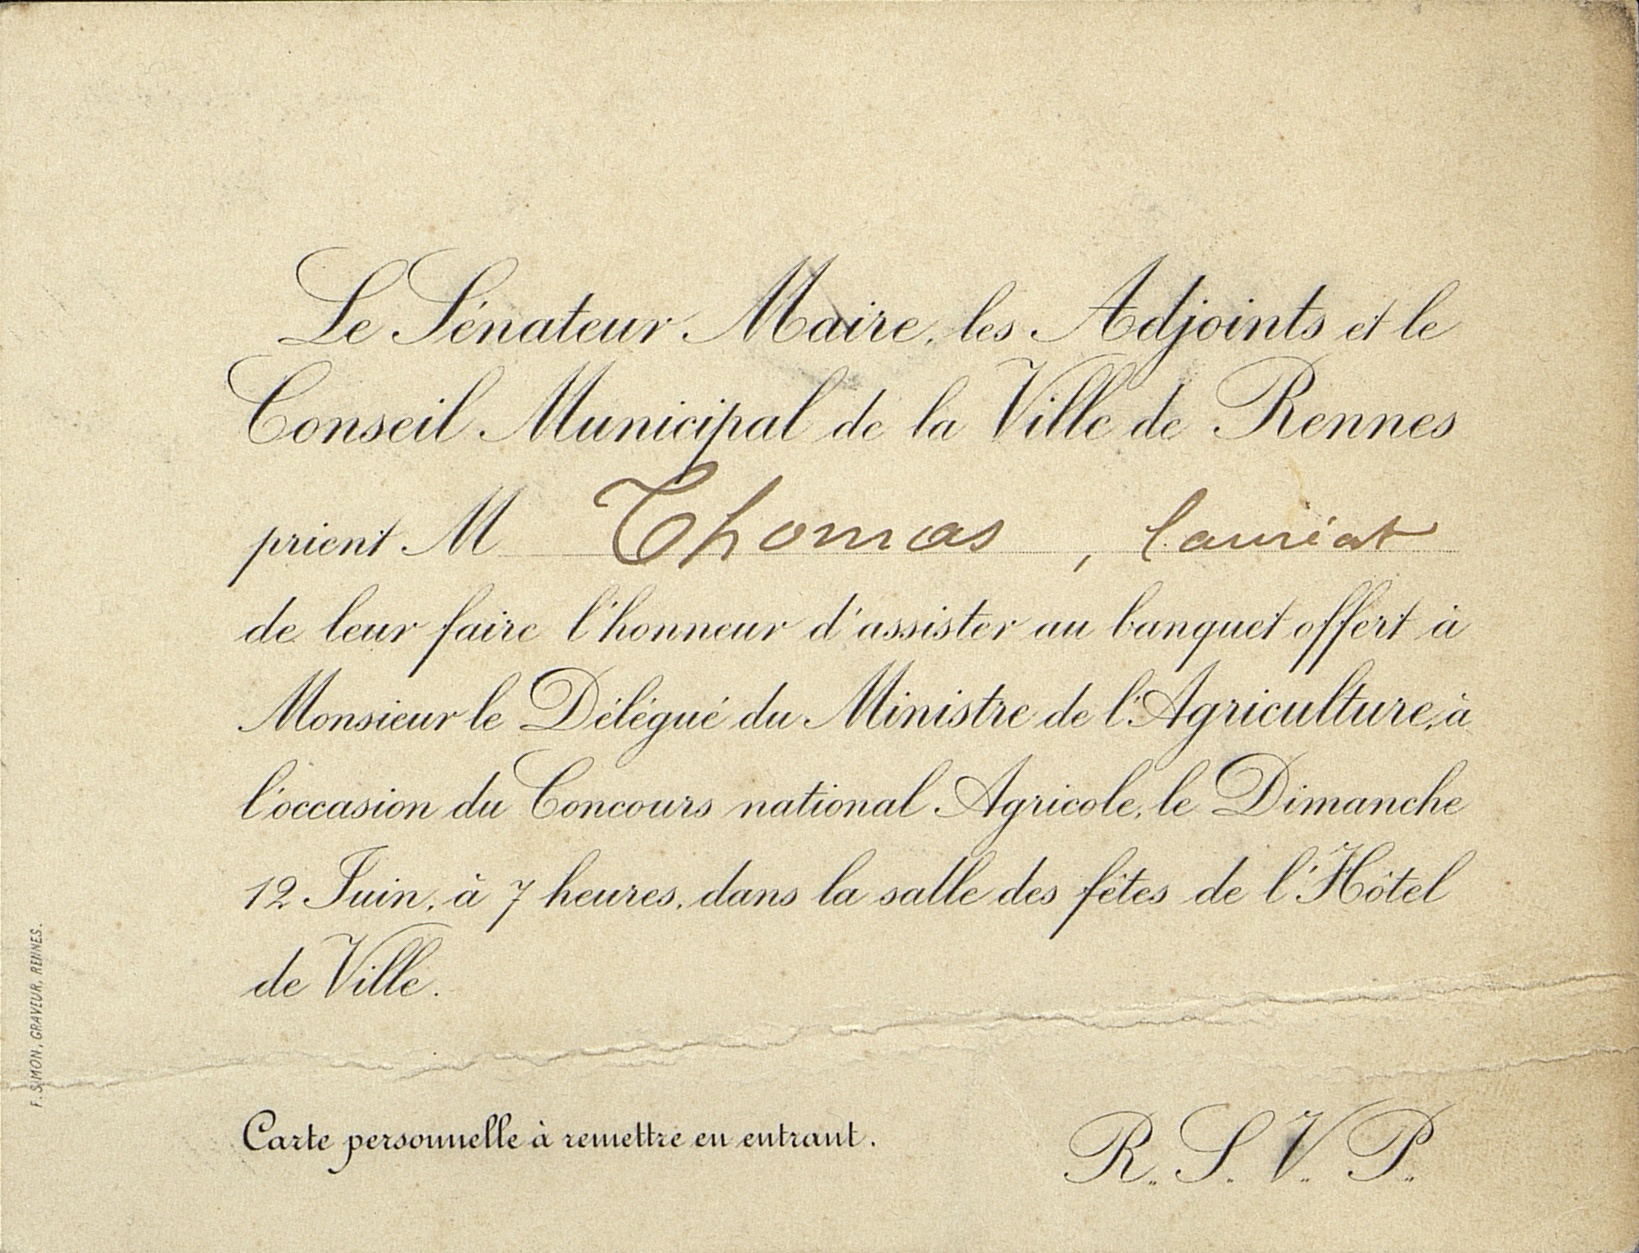 Le Sénateur Maire, les Adjoints et le
Conseil Municipal de la Ville de Rennes
prient M Thomas, lauréat
de leur faire l'honneur d'assister au banquet offert à
Monsieur le Délégué du Ministre de l'Agriculture, à
l'occasion du Concours national Agricole, le Dimanche
12 Juin, à 7 heures, dans la salle des fêtes de l'Hôtel
de Ville.
Carte personnelle à remettre en entrant.
R. S. V. P.
F. SIMON, GRAVEUR, RENNES.